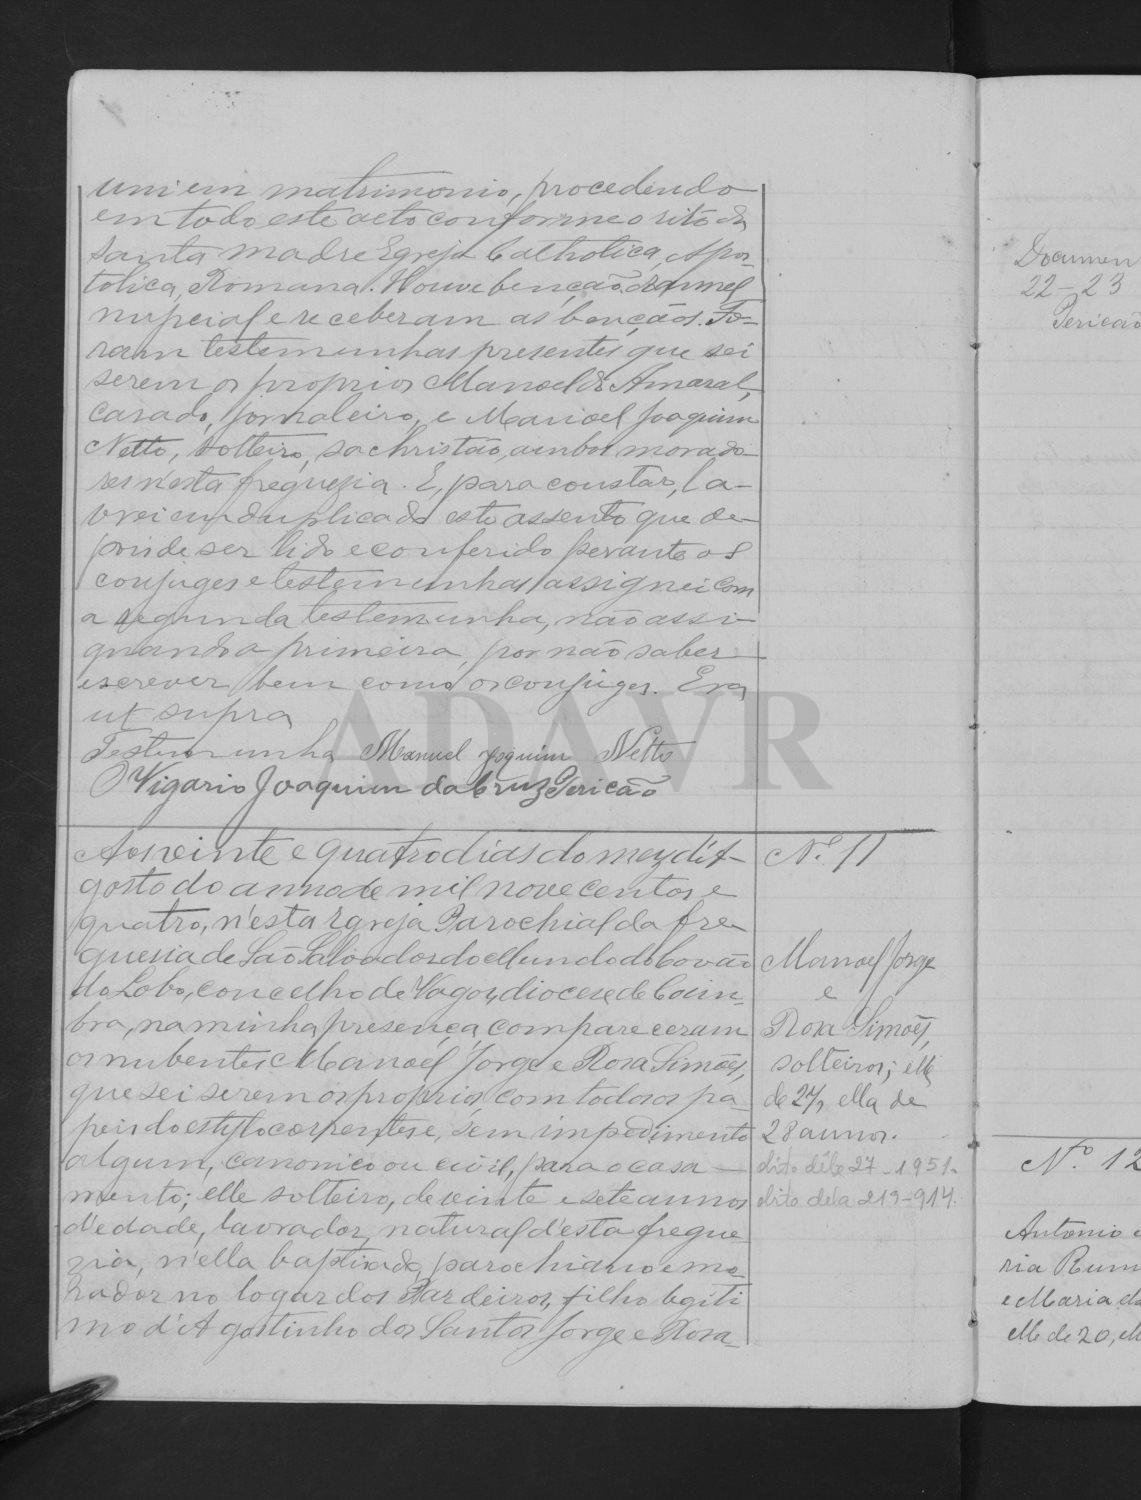 uni em matrimonio, procedendo
em todo este acto conforme o rito da
Santa Madre Egreja Catholica, Apos-
tolica, Romana. Houve bençaõ
nupcial e receberam as bençãos. Fo-
ram testemunhas presentes que sei
serem os proprios Manoel d'Amaral,
casado, jornaleiro, e Manoel Joaquim
Netto, solteiro, sachristão, ambos morado-
res n'esta freguezia. E, para constar, la-
vrei em duplicado este assento que de-
pois de ser lido e conferido perante os
conjuges e testemunhas assignei com
a segunda testemunha, não assi-
gnando a primeira, por não saber
escrever bem como os conjuges. Era
ut supra
Testemunha Manuel Joquim Netto
O Vigario Joaquim da Cruz Pericão
ADAVR
Aos vinte e quatro dias do mez d'A-
gosto do anno de mil nove centos e
quatro, n'esta Egreja Parochial da fre-
guesia de São Salvador do Mundo do Covão
do Lobo, concelho de Vagos, diocese de Coim-
bra, na minha presença, compareceram
os nubentes Manoel Jorge e Rosa Simões,
que sei serem os proprios, com todos os pa-
peis do estylo correntes e, sem impedimento
algum, canonico ou civil, para o casa-
mento; elle solteiro, de vinte e sete annos
d'edade, lavrador, natural d'esta fregue
zia, n'ella baptisado, parochiano e mo-
rador no logar dos Pardeiros, filho legiti
mo d'Agostinho dos Santos Jorge e Rosa
Nº 11
Manoel Jorge
e
Rosa Simões,
solteiros; elle
de 27, ella de
28 annos.
dito dêle 27-1951.
dito dela 213-914.
Documen
22-23
Pericão
Nº 12
Antonio
ria Rum
e Maria da
elle de 20, el